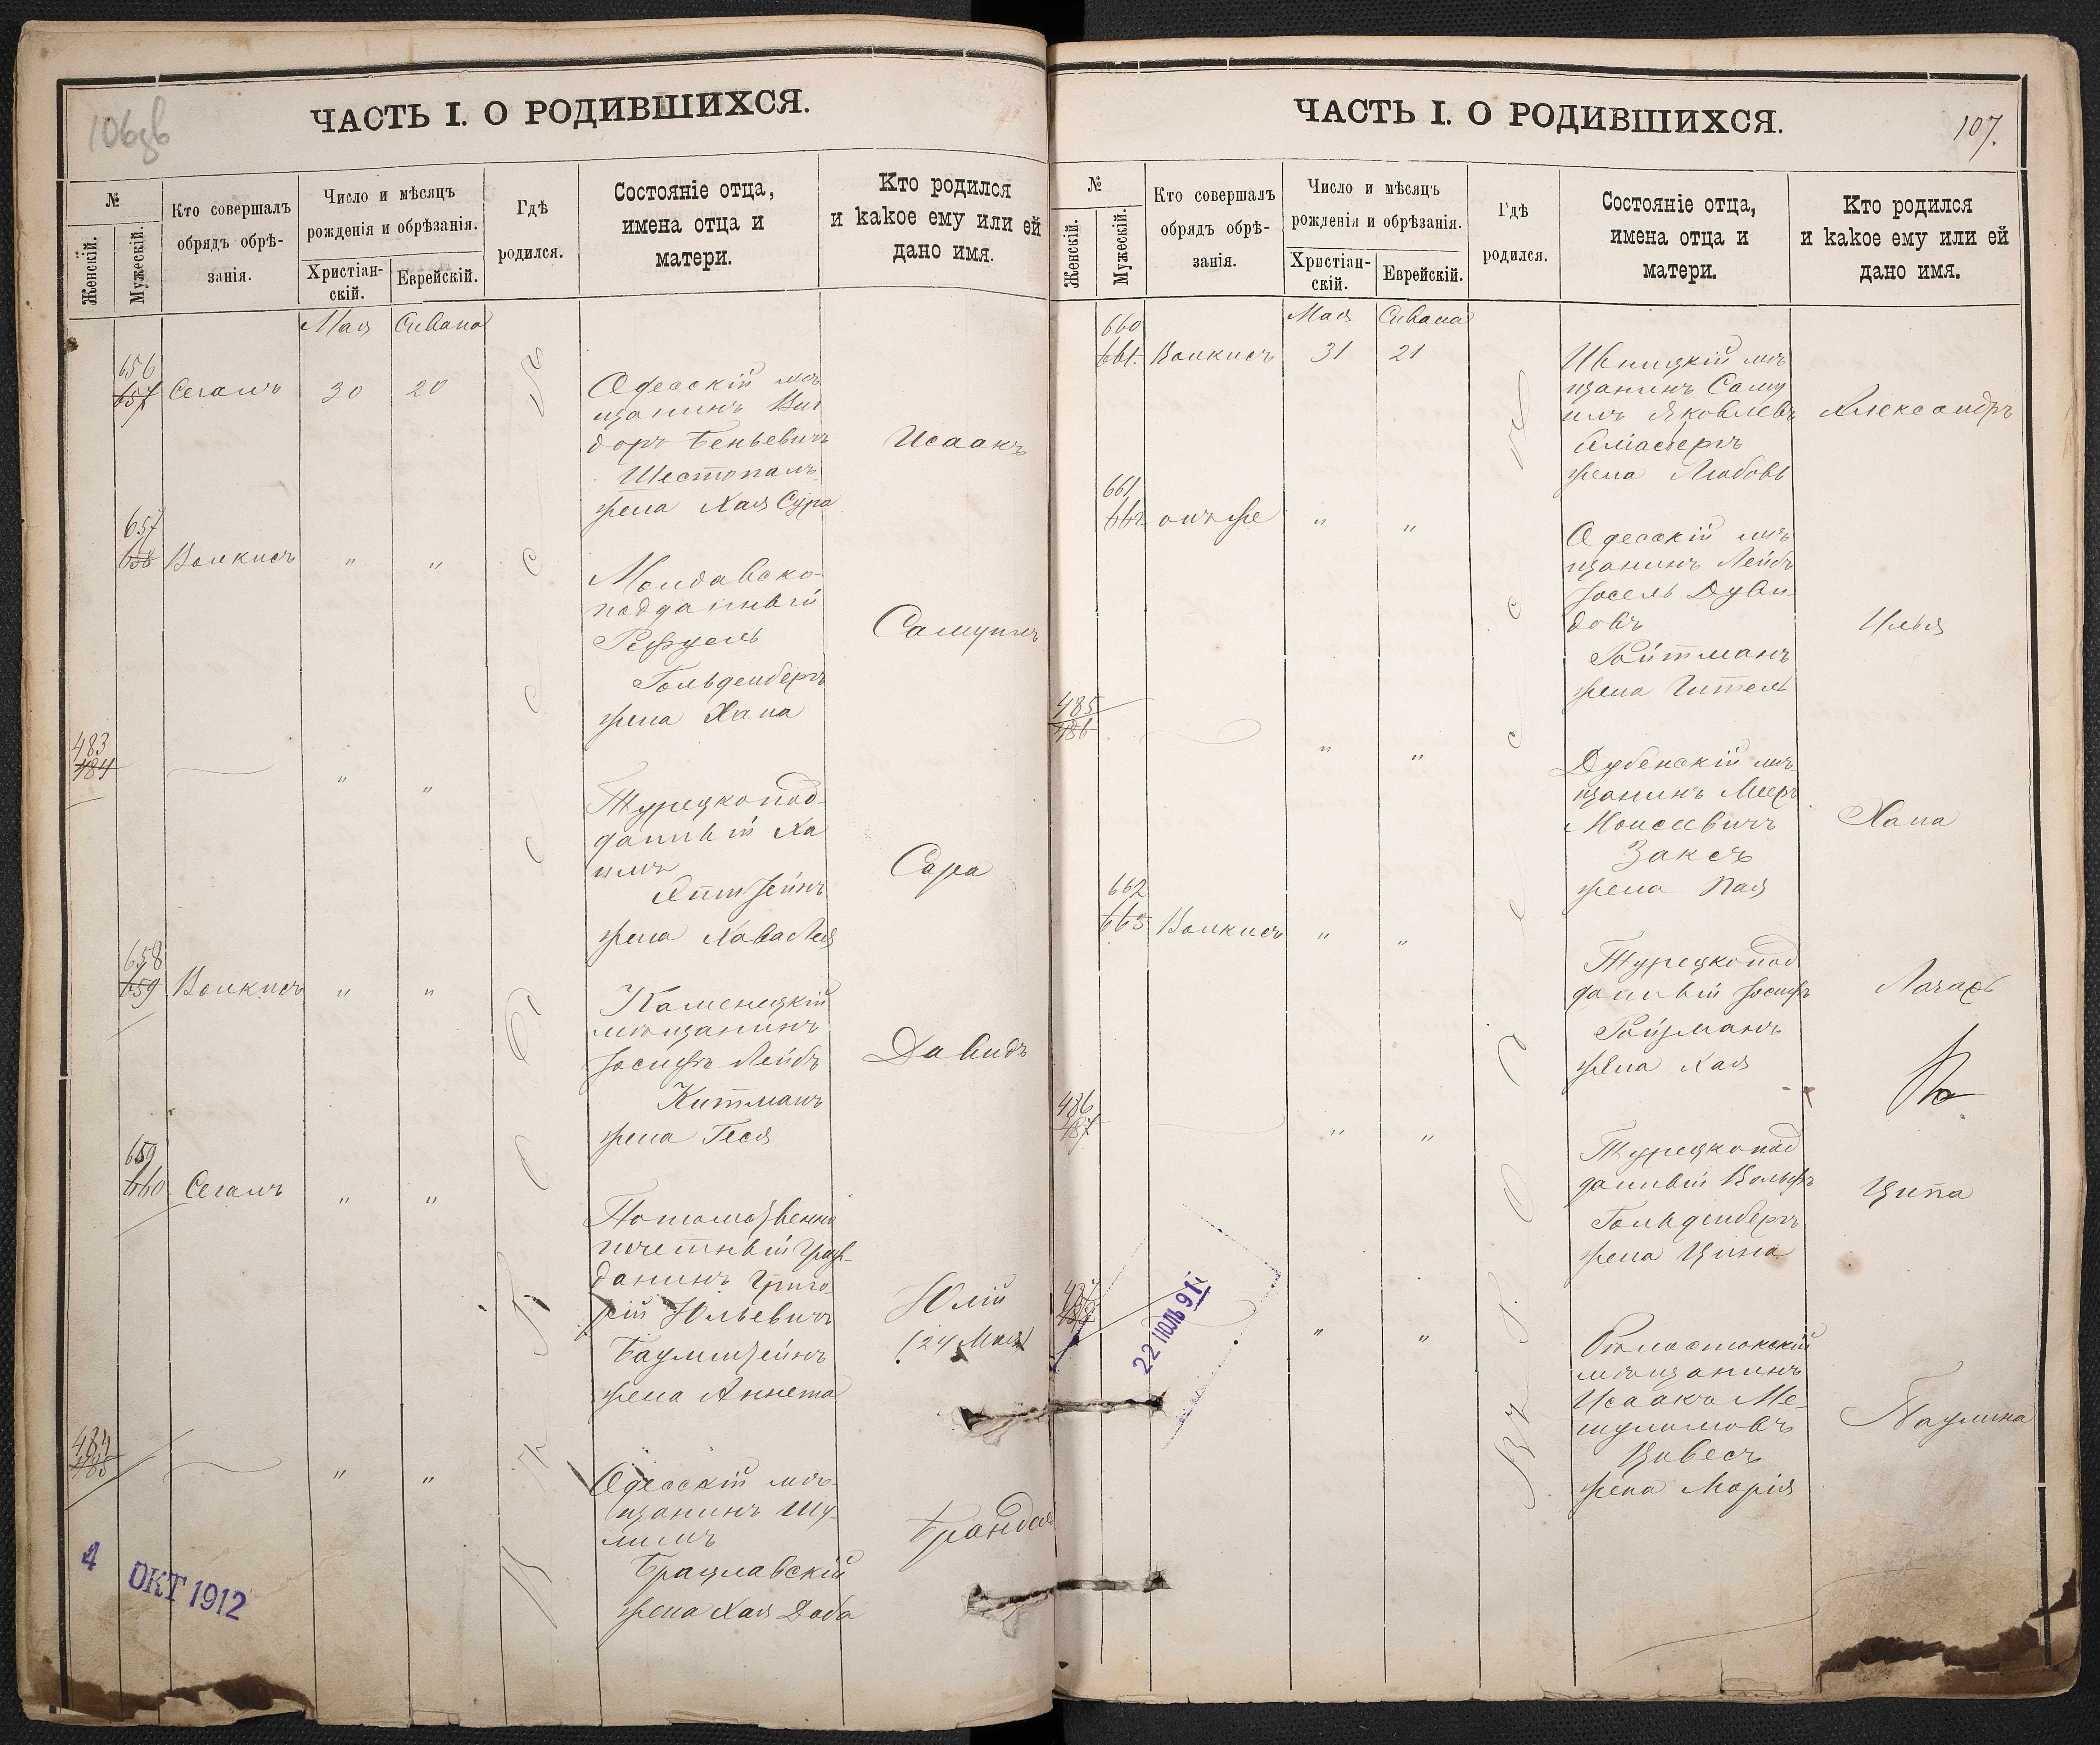 106об
ЧАСТЬ I. О РОДИВШИХСЯ.
№
Женскій.
Мужескій.
Кто совершалъ
обрядъ обрѣ-
занія.
Число и мѣсяцъ
рожденія и обрѣзанія.
Христіан-
скій.
Еврейскій.
Гдѣ
родился.
Состояніе отца,
имена отца и
матери.
Кто родился
и какое ему или ей
дано имя.
Мая Сивана
656
657 Сегалъ 30 20
Одесскій мѣ
щанинъ Виг
доръ Беньевичъ
Шестопалъ
жена Хая Сура
Исаакъ
657
658 Волкисъ " "
Молдавско-
подданный
Рефуель
Гольденбергъ
жена Хана
Самуилъ
483
484 " "
Турецкопод-
данный Ха
имъ
жена Хава Лея
Сара
658
659 Волкисъ " "
Каменецкій
мѣщанинъ
Іосифъ Лейбъ
Китманъ
жена Геся
Давидъ
659
660 Сегалъ " "
Потомственно
почетный граж-
данинъ Григо-
рій Юльевичъ
Баумштейнъ
жена Аннета
Юлій
(24 Мая)
484
485 " "
Одесскій мѣ-
щанинъ Шу-
лимъ
Брацлавскій
жена Хая Доба
Брандля
4 ОКТ 1912
ЧАСТЬ I. О РОДИВШИХСЯ.
107.
№
Женскій.
Мужескій.
Кто совершалъ
обрядъ обрѣ-
занія.
Число и мѣсяцъ
рожденія и обрѣзанія.
Христіан-
скій.
Еврейскій.
Гдѣ
родился.
Состояніе отца,
имена отца и
матери.
Кто родился
и какое ему или ей
дано имя.
Мая Сивана
660
661. Волкисъ 31 21
мѣ
щанинъ Саму
илъ Яковлевъ
жена Любовь
Александръ
661
662 онъ же " "
Одесскій мѣ
щанинъ Лейбъ
Іосель Дуви-
довъ
Ройтманъ
жена Гитель
Илья
485
486 " "
Дубенскій мѣ-
щанинъ Меер
Моисеевичъ
Заксъ
жена Пая
Хана
662
663 Волкисъ " "
Турецкопод
данный Іосифъ
Ройзманъ
жена Хая
486
487 " "
Турецкопод
данный Вольфъ
Гольденбергъ
жена Цина
Ципа
487
488 " "
22 ІЮЛЬ 911
Бѣлостокскій
мѣщанинъ
Исаакъ Ме-
шулимовъ
Цивесъ
жена Марія
Паулина